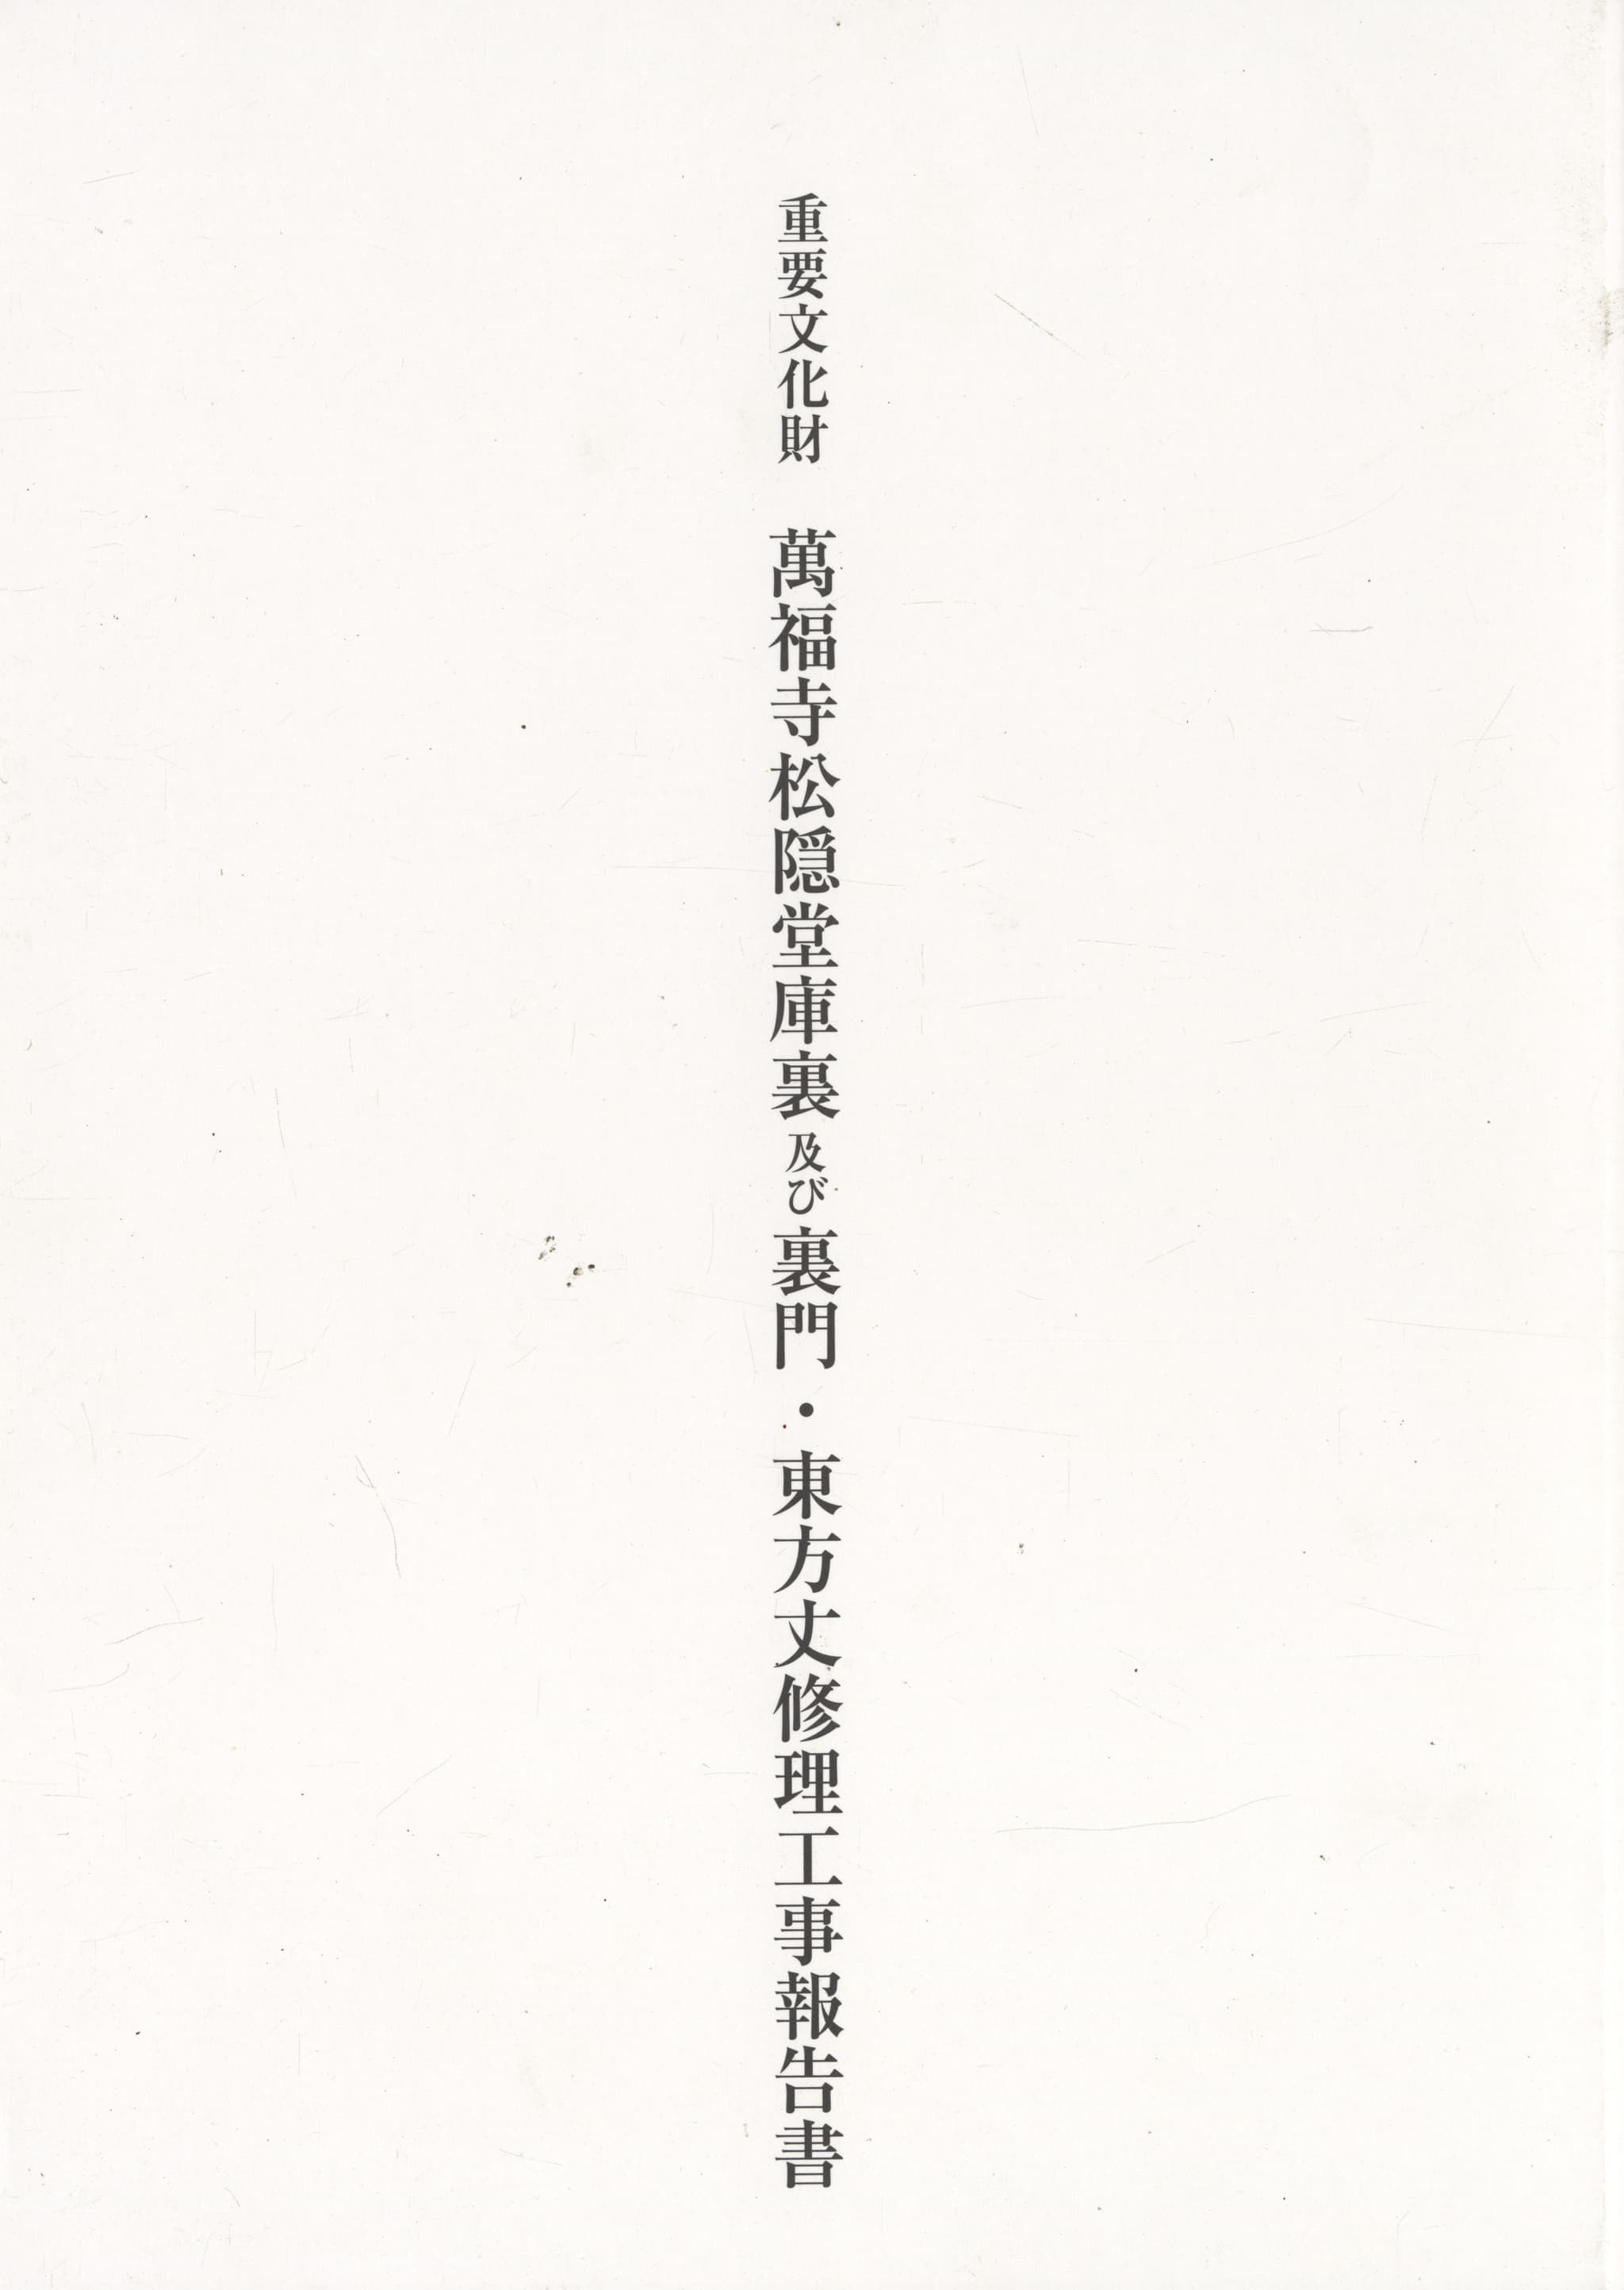 重要文化財　萬福寺松隠堂庫裏及び裏門・東方丈修理工事報告書